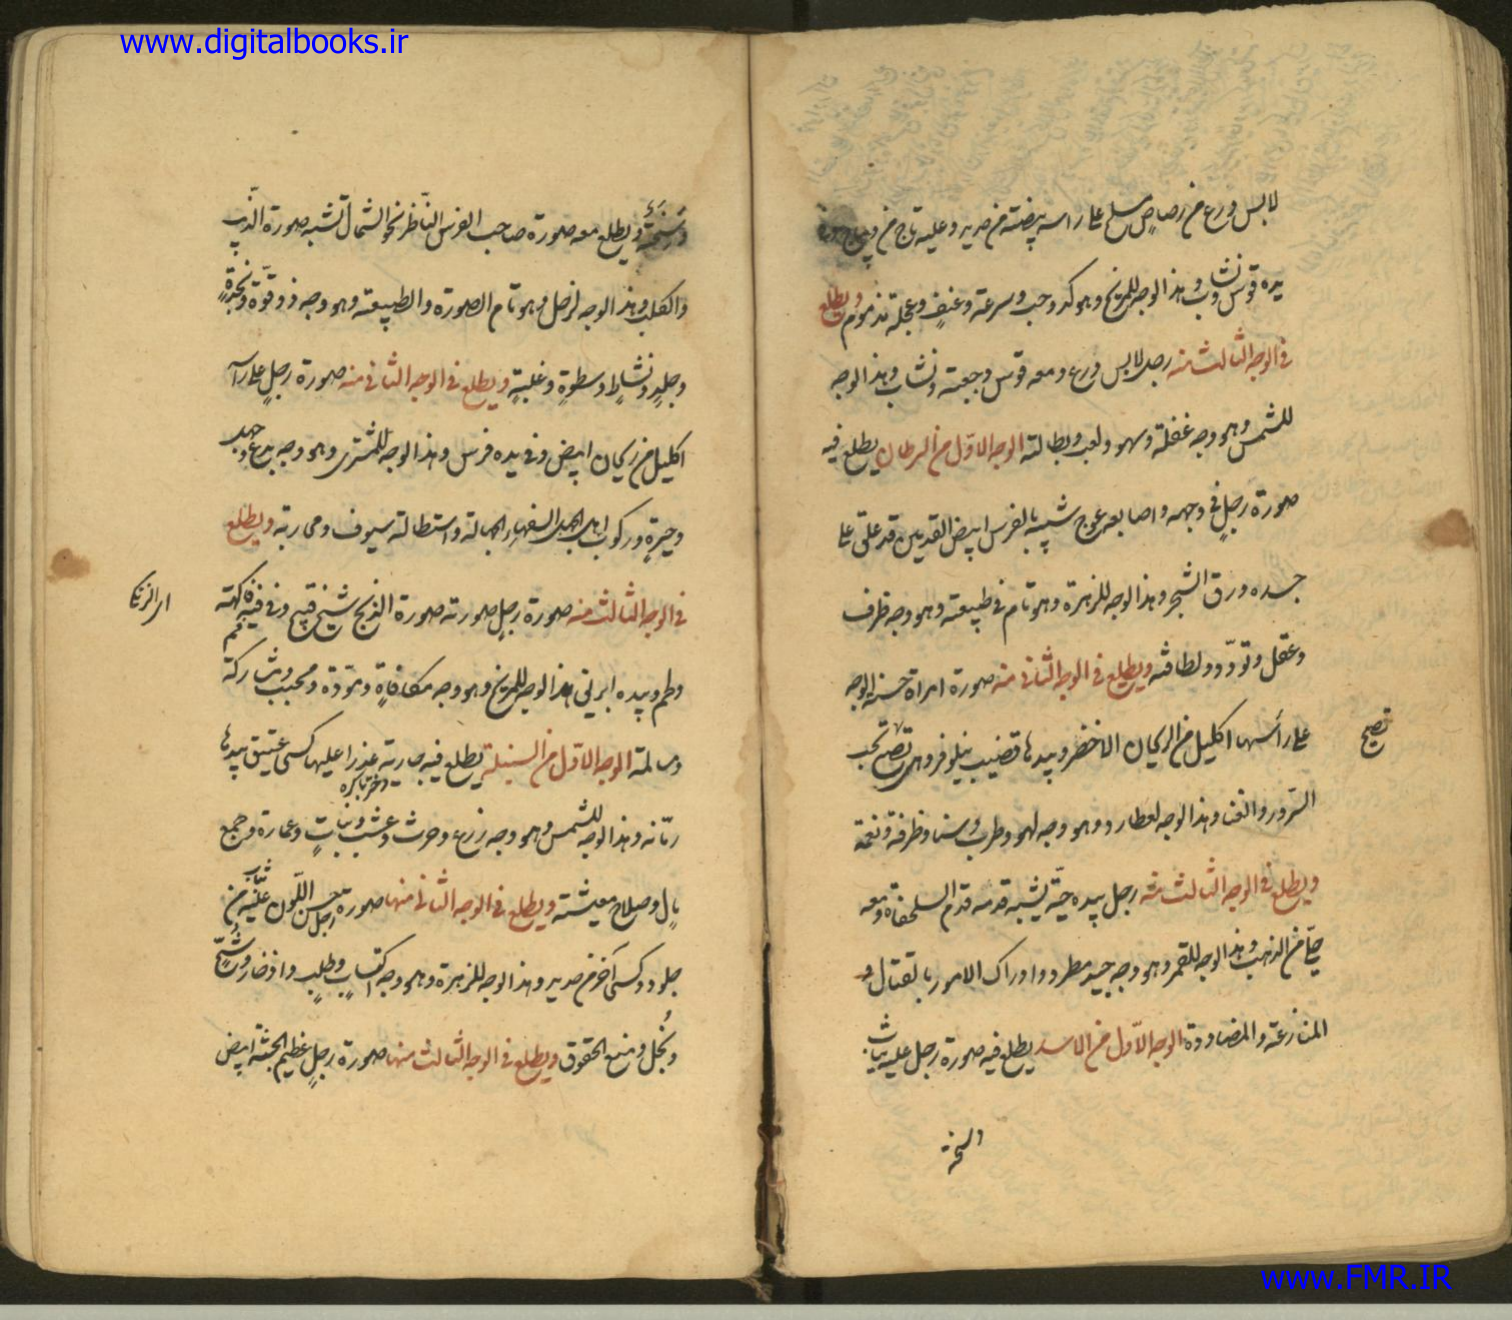 www.digitalbooks.ir
لابس درع من رصاص مسلح على راسه بيضة من حديد وعليه تاج من ديباج
يده قوس ونشاب وهذا الوجه للمريخ وهو كد وحب وسرعة وعنف وعجلة مذموم ويطلع
في الوجه الثالث منه رجل لابس درع ومعه قوس وجعبة ونشاب وهذا الوجه
للشمس وهو وجه غفلة وسهو ولعب وبطالة الوجه الاول من السرطان يطلع فيه
صورة رجل في وجهه واصابعه عوج شبيه بالفرس ابيض القدمين قد علق على
جسده ورق الشجر وهذا الوجه للزهرة وهو تام في طبيعته وهو وجه ظرف
وعقل وتودد ولطافة ويطلع في الوجه الثاني منه صورة امراة حسنة الوجه
على رأسها اكليل من الريحان الاخضر وبيدها قضيب نيلوفر وهي تصيح تحب
تصيح
السرور والغنا وهذا الوجه لعطارد وهو وجه لهو وطرب وسنا وظرفة ونعمة
ويطلع في الوجه الثالث منه رجل بيده حية يشبه قدمه قدم السلحفاة ومعه
حلي من الذهب وهذا الوجه للقمر وهو وجه جيد مطرد وادراك الامور بالقتال و
المنازعة والمضاددة الوجه الاول من الاسد يطلع فيه صورة رجل عليه ثياب
وسخة
وسخة ويطلع معه صورة صاحب الفرس الناظر نحو الشمال تشبه صورة الذيب
والكلب وهذا الوجه لزحل وهو تام الصورة والطبيعة وهو وجه ذو قوة ونجدة
وجلد ونشاط وسطوة وغلبة ويطلع في الوجه الثاني منه صورة رجل على راسه
اكليل من ريحان ابيض وفي يده قوس وهذا الوجه للمشتري وهو وجه بدع وجهد
وحيرة وركوب اهل الجهل السفهاء الجهالة واستطالة سيوف ومحاربة ويطلع
في الوجه الثالث منه صورة رجل صورته صورة الزنج شيخ قبيح وفي فيه فاكهة
اي الزنكي
ولحم وبيده ابريق هذا الوجه للمريخ وهو وجه مكافاة ومودة ومحبب ومشاركة
ومسالمة الوجه الاول من السنبلة يطلع فيه جارية عذرا عليها كسى عتيق بيدها
دختر باكره
رمانة وهذا الوجه للشمس وهو وجه زرع وحرث وعشب ونبات وعمارة وجمع
مال وصلاح معيشة ويطلع في الوجه الثاني منها صورة رجل حسن اللون عليه ثياب من
جلود وكسى آخر من حديد وهذا الوجه للزهرة وهو وجه اكتساب وطلب وادخار وشح
وبخل ومنع الحقوق ويطلع في الوجه الثالث منها صورة رجل عظيم الجثة ابيض
www.FMR.IR